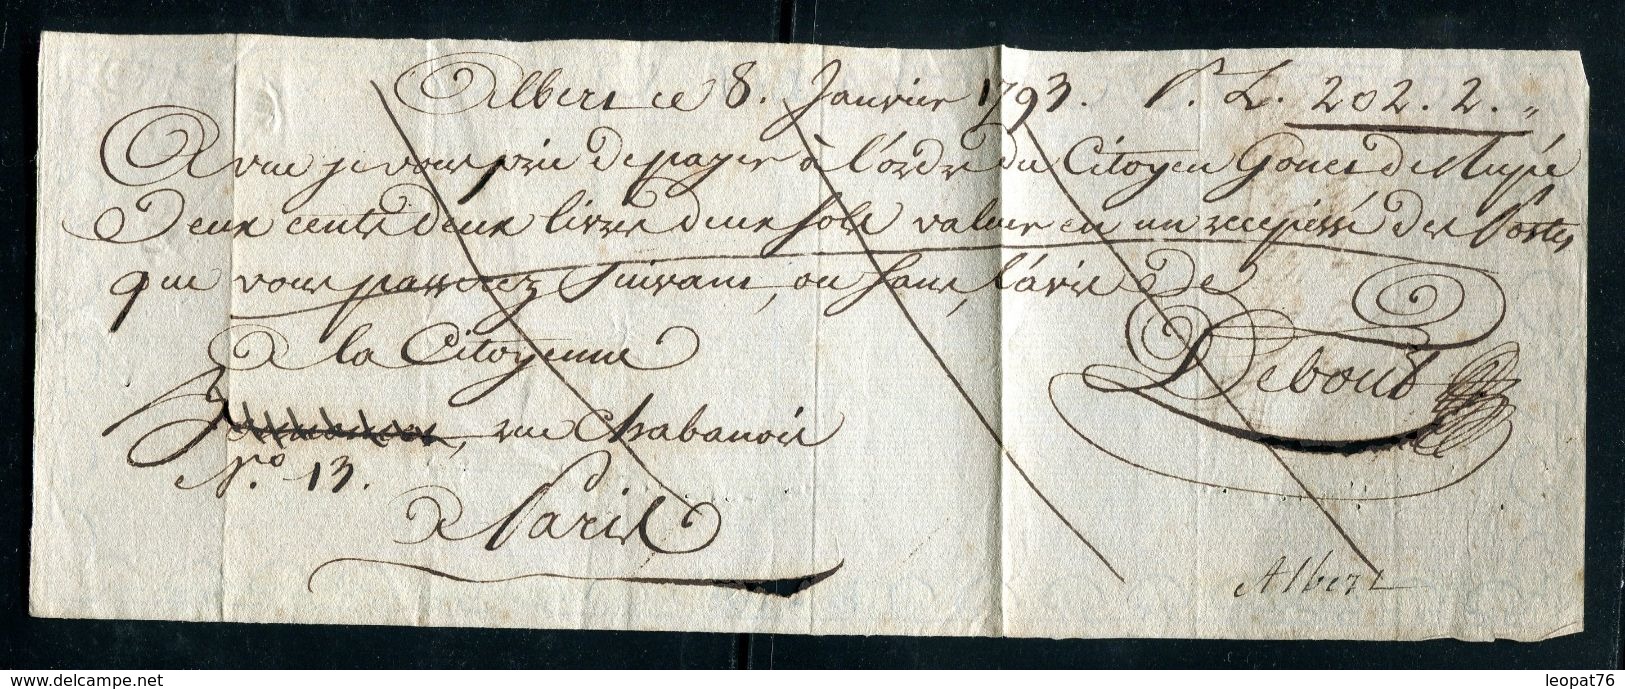 Albert ce 8. Janvier 1793. P. L. 202. 2. "
A vue je vous prie de payer à l'ordre du Citoyen Gouet de Rupé
Deux cents deux livres deux sols valeur en un recepissé des Postes
que vous passerez suivant, ou sans, l'avis de
à la Citoyenne
Debout
, rue Chabanois
N.° 13.
à Paris
Albert
www.delcampe.net
leopat76